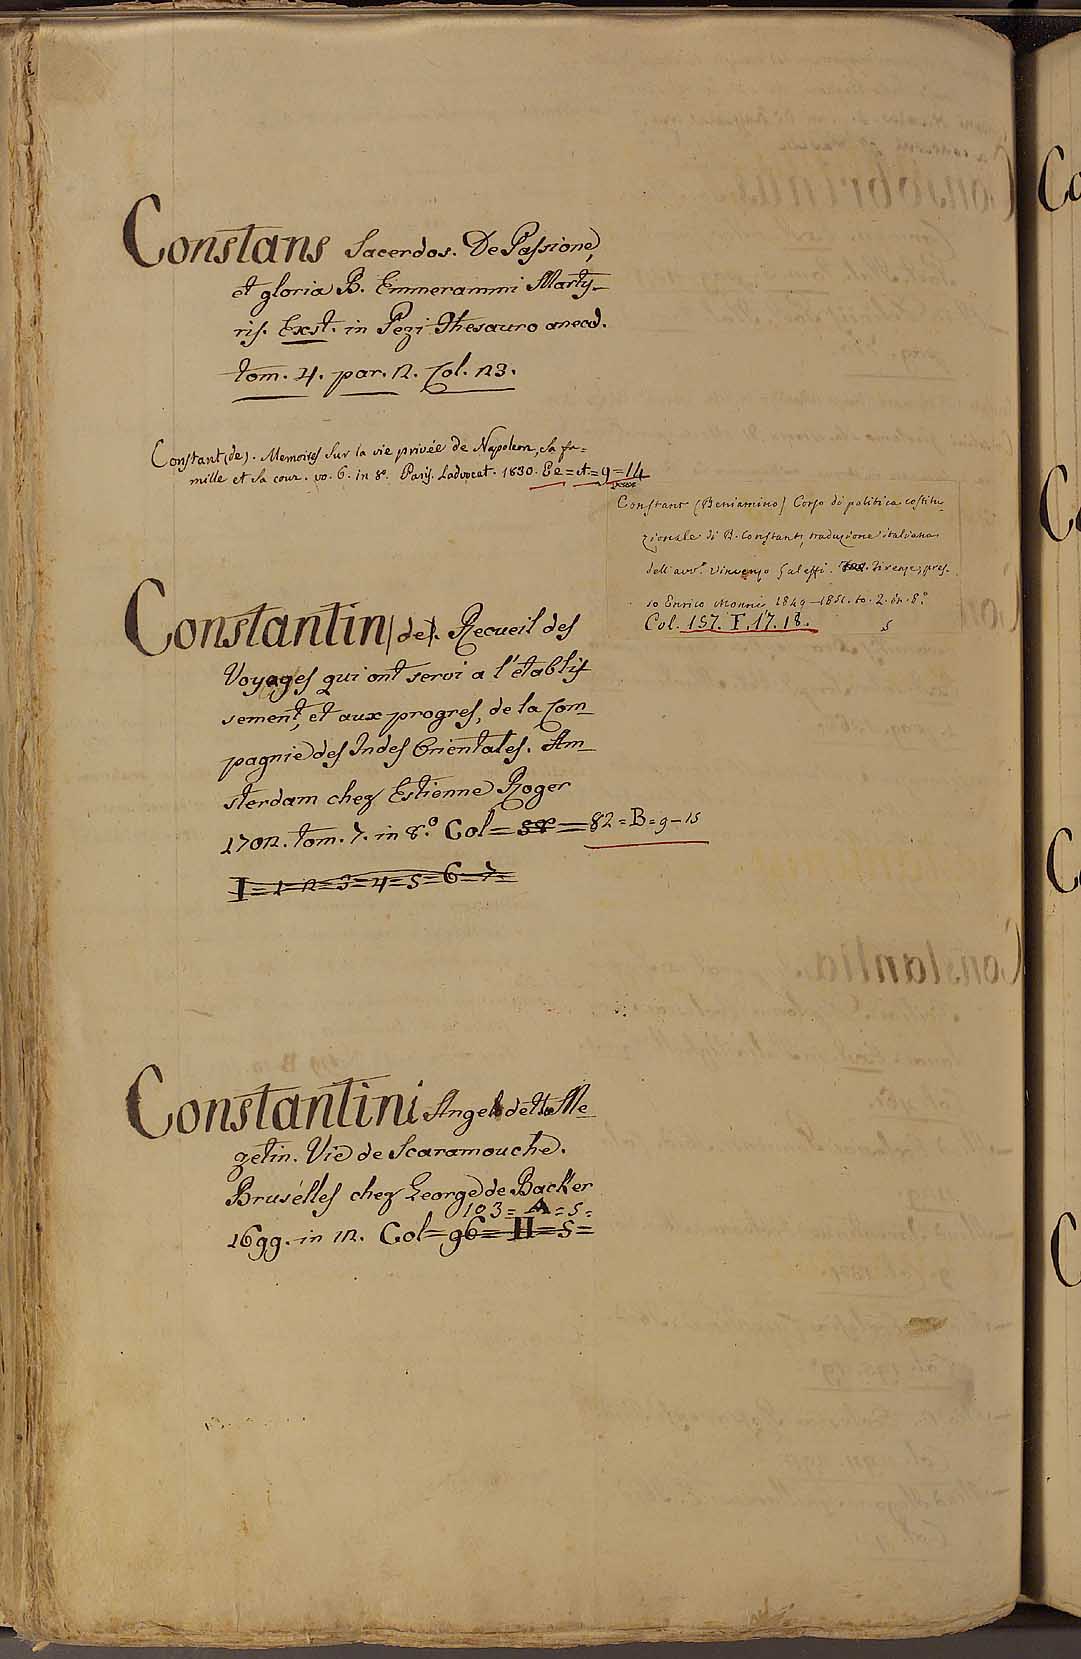 Constans Sacerdos. De Passione,
et gloria B. Emmerammi Marty-
ris. Exst. in Pezi Thesauro anecd.
tom. 4. par. 2. Col. 23.
Constant (de). Memoires sur la vie privée de Napoleon, sa fa=
mille et sa cour. vo. 6. in 8º. Paris. Ladvocat. 1830. Ee=A=9=14
Constant (Beniamino) Corso di politica costitu-
zionale di B. Constant, traduzione italiana
dell'avv.º Vincenzo Galeffi. Firenze, pres-
so Enrico Monni, 1849-1851. to. 2. in 8.º
Col. 157. F. 17. 18.
5
Constantin (de). Recueil des
Voyages qui ont servi a l'etablis
sement, et aux progres, de la Com-
pagnie des Indes Orientales. Am-
sterdam chez Estienne Roger
1702. tom. 7. in 8.º Col=58=82=B=9-15
I=1=2=3=4=5=6=7=
Constantini Angelo detto Me-
zetin. Vie de Scaramouche.
Brusélles chez George de Backer
103=A=5=
1699. in 12. Col=96=H=5=
Co
Co
Co
C